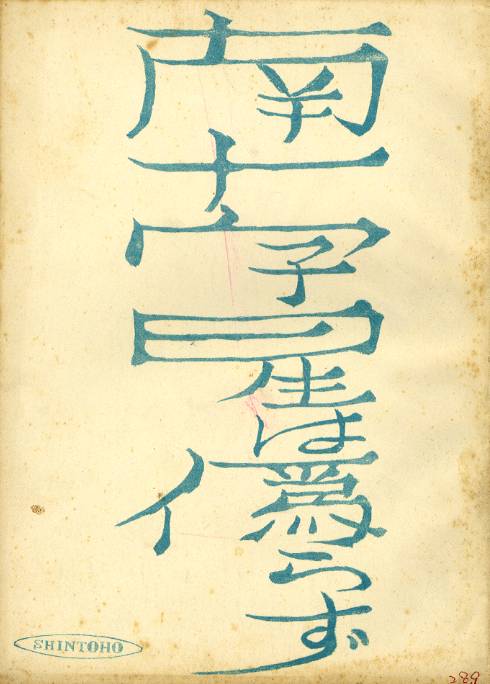 南十字星は偽らず
SHINTOHO
289